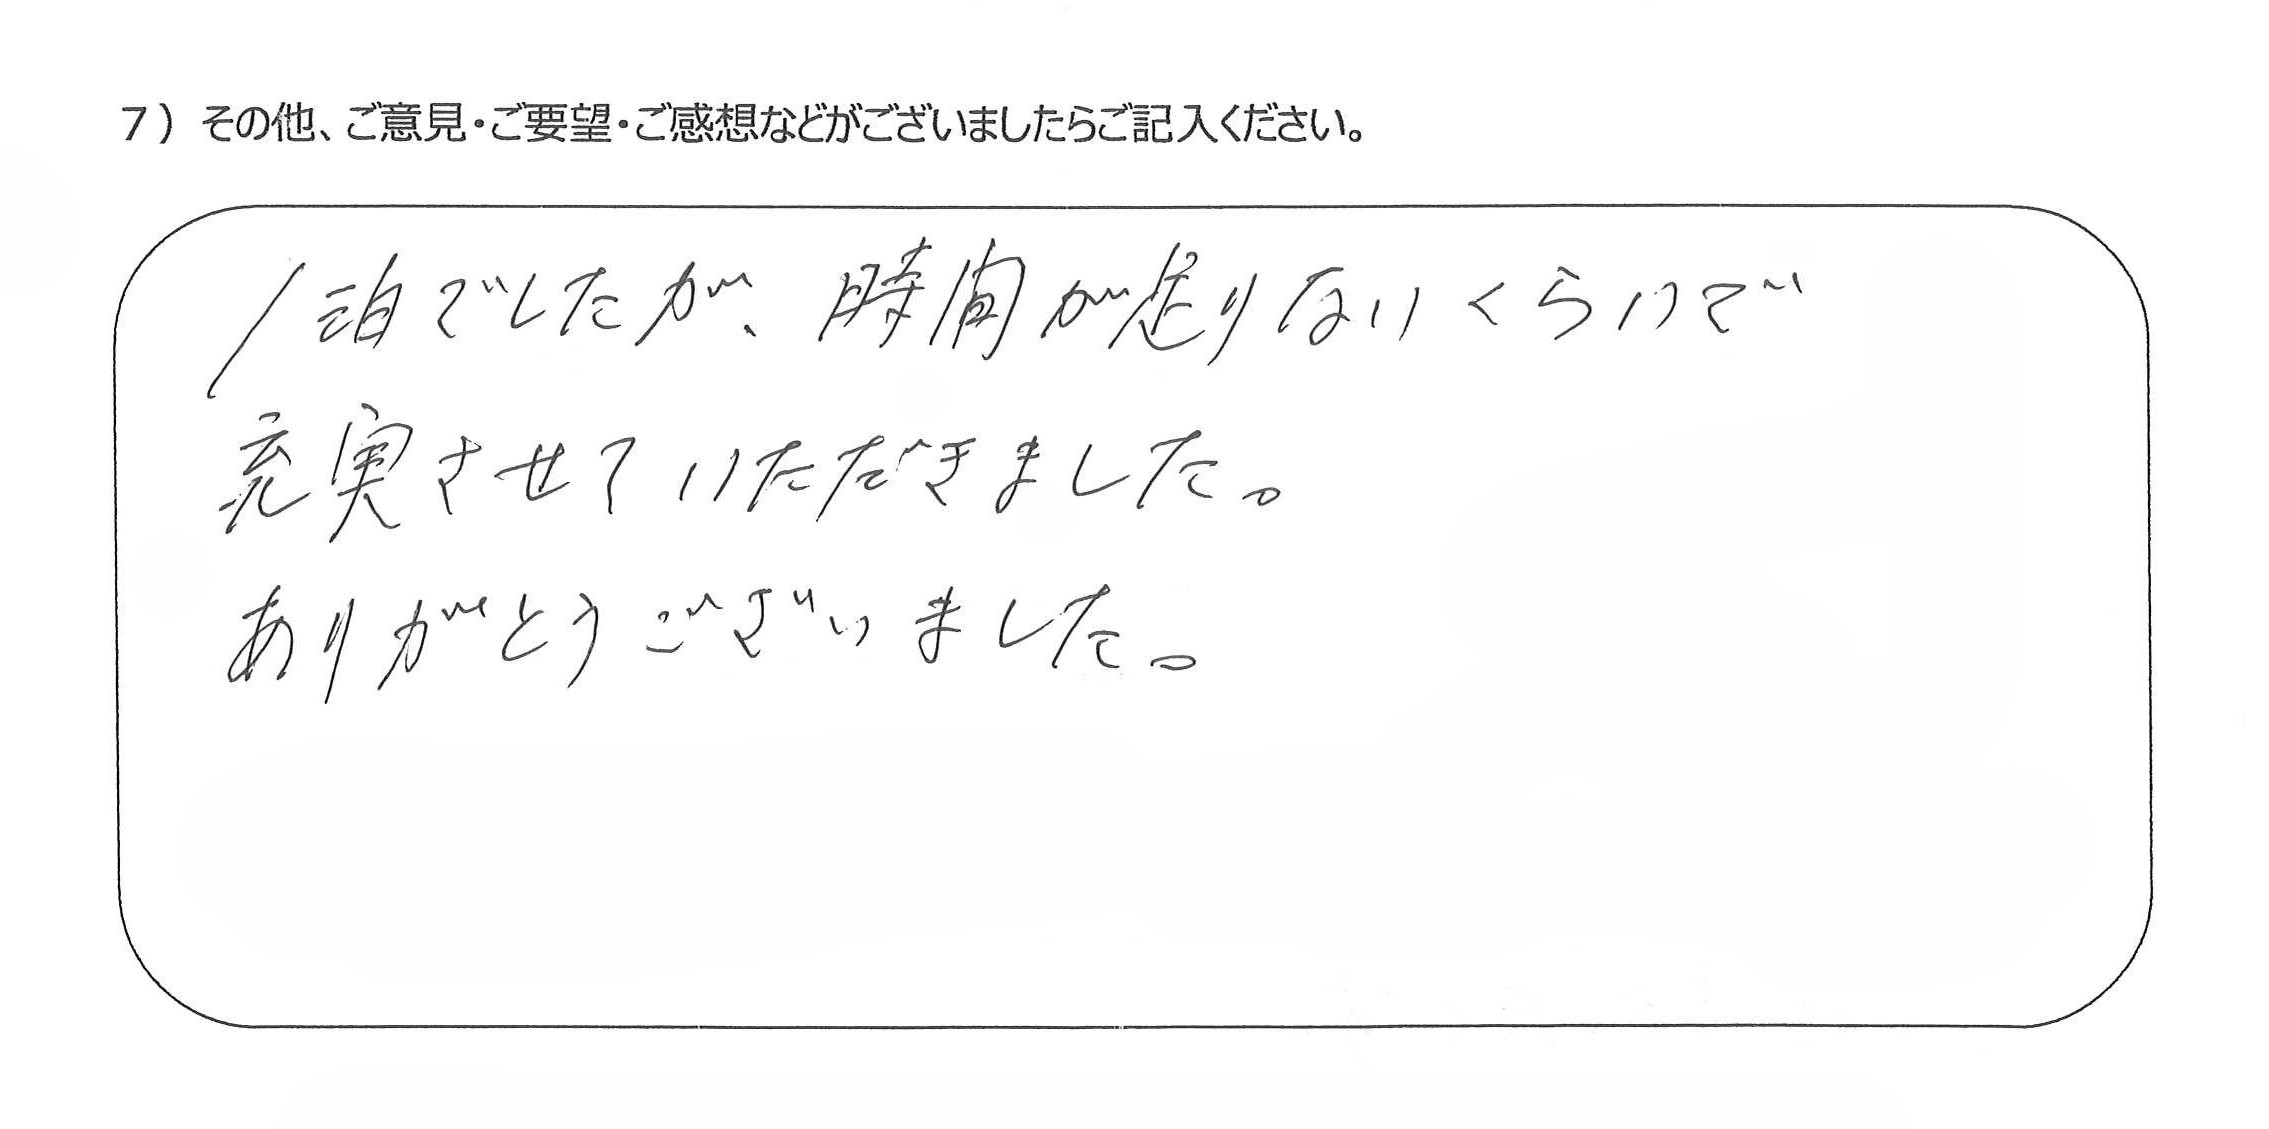 7）その他、ご意見・ご要望・ご感想などがございましたらご記入ください。
1泊でしたが、時間が足りないくらいで
充実させていただきました。
ありがとうございました。